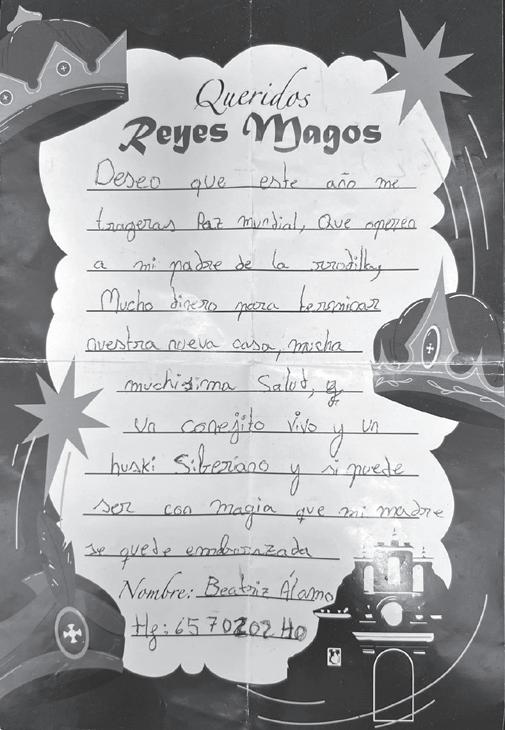 Queridos
Reyes Magos
Deseo que este año me
trageras Paz mundial, Que operen
a mi padre de la rrodilla,
Mucho dinero para terminar
nuestra nueva casa, mucha
muchisima Salud, y
Un conejito vivo y un
huski Siberiano y si puede
ser con magia que mi madre
se quede embarazada
Nombre: Beatriz Álamo
: 657020240